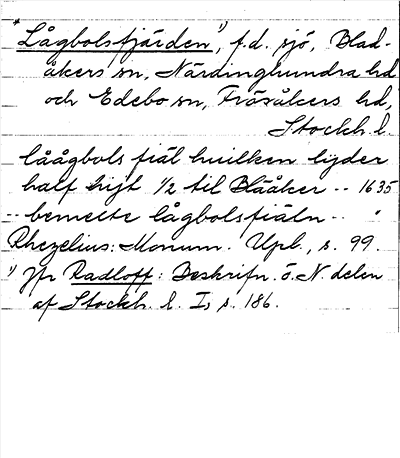 * Lågbolsfjärden 1), f.d. sjö, Blad-
åkers sn, Närdinghundra hd
och Edebo sn, Frösåkers hd,
Stockh. l.
låågbols fiäl huilken lyder
half hijt 1/2 til Blååker -- 1635
-- bemelte lågbolsfiäln -- "
Rhezelius: Monum. Upl., s. 99.
1) Jfr Radloff: Beskrifn. ö. N. delen
af Stockh. l. I, s. 186.